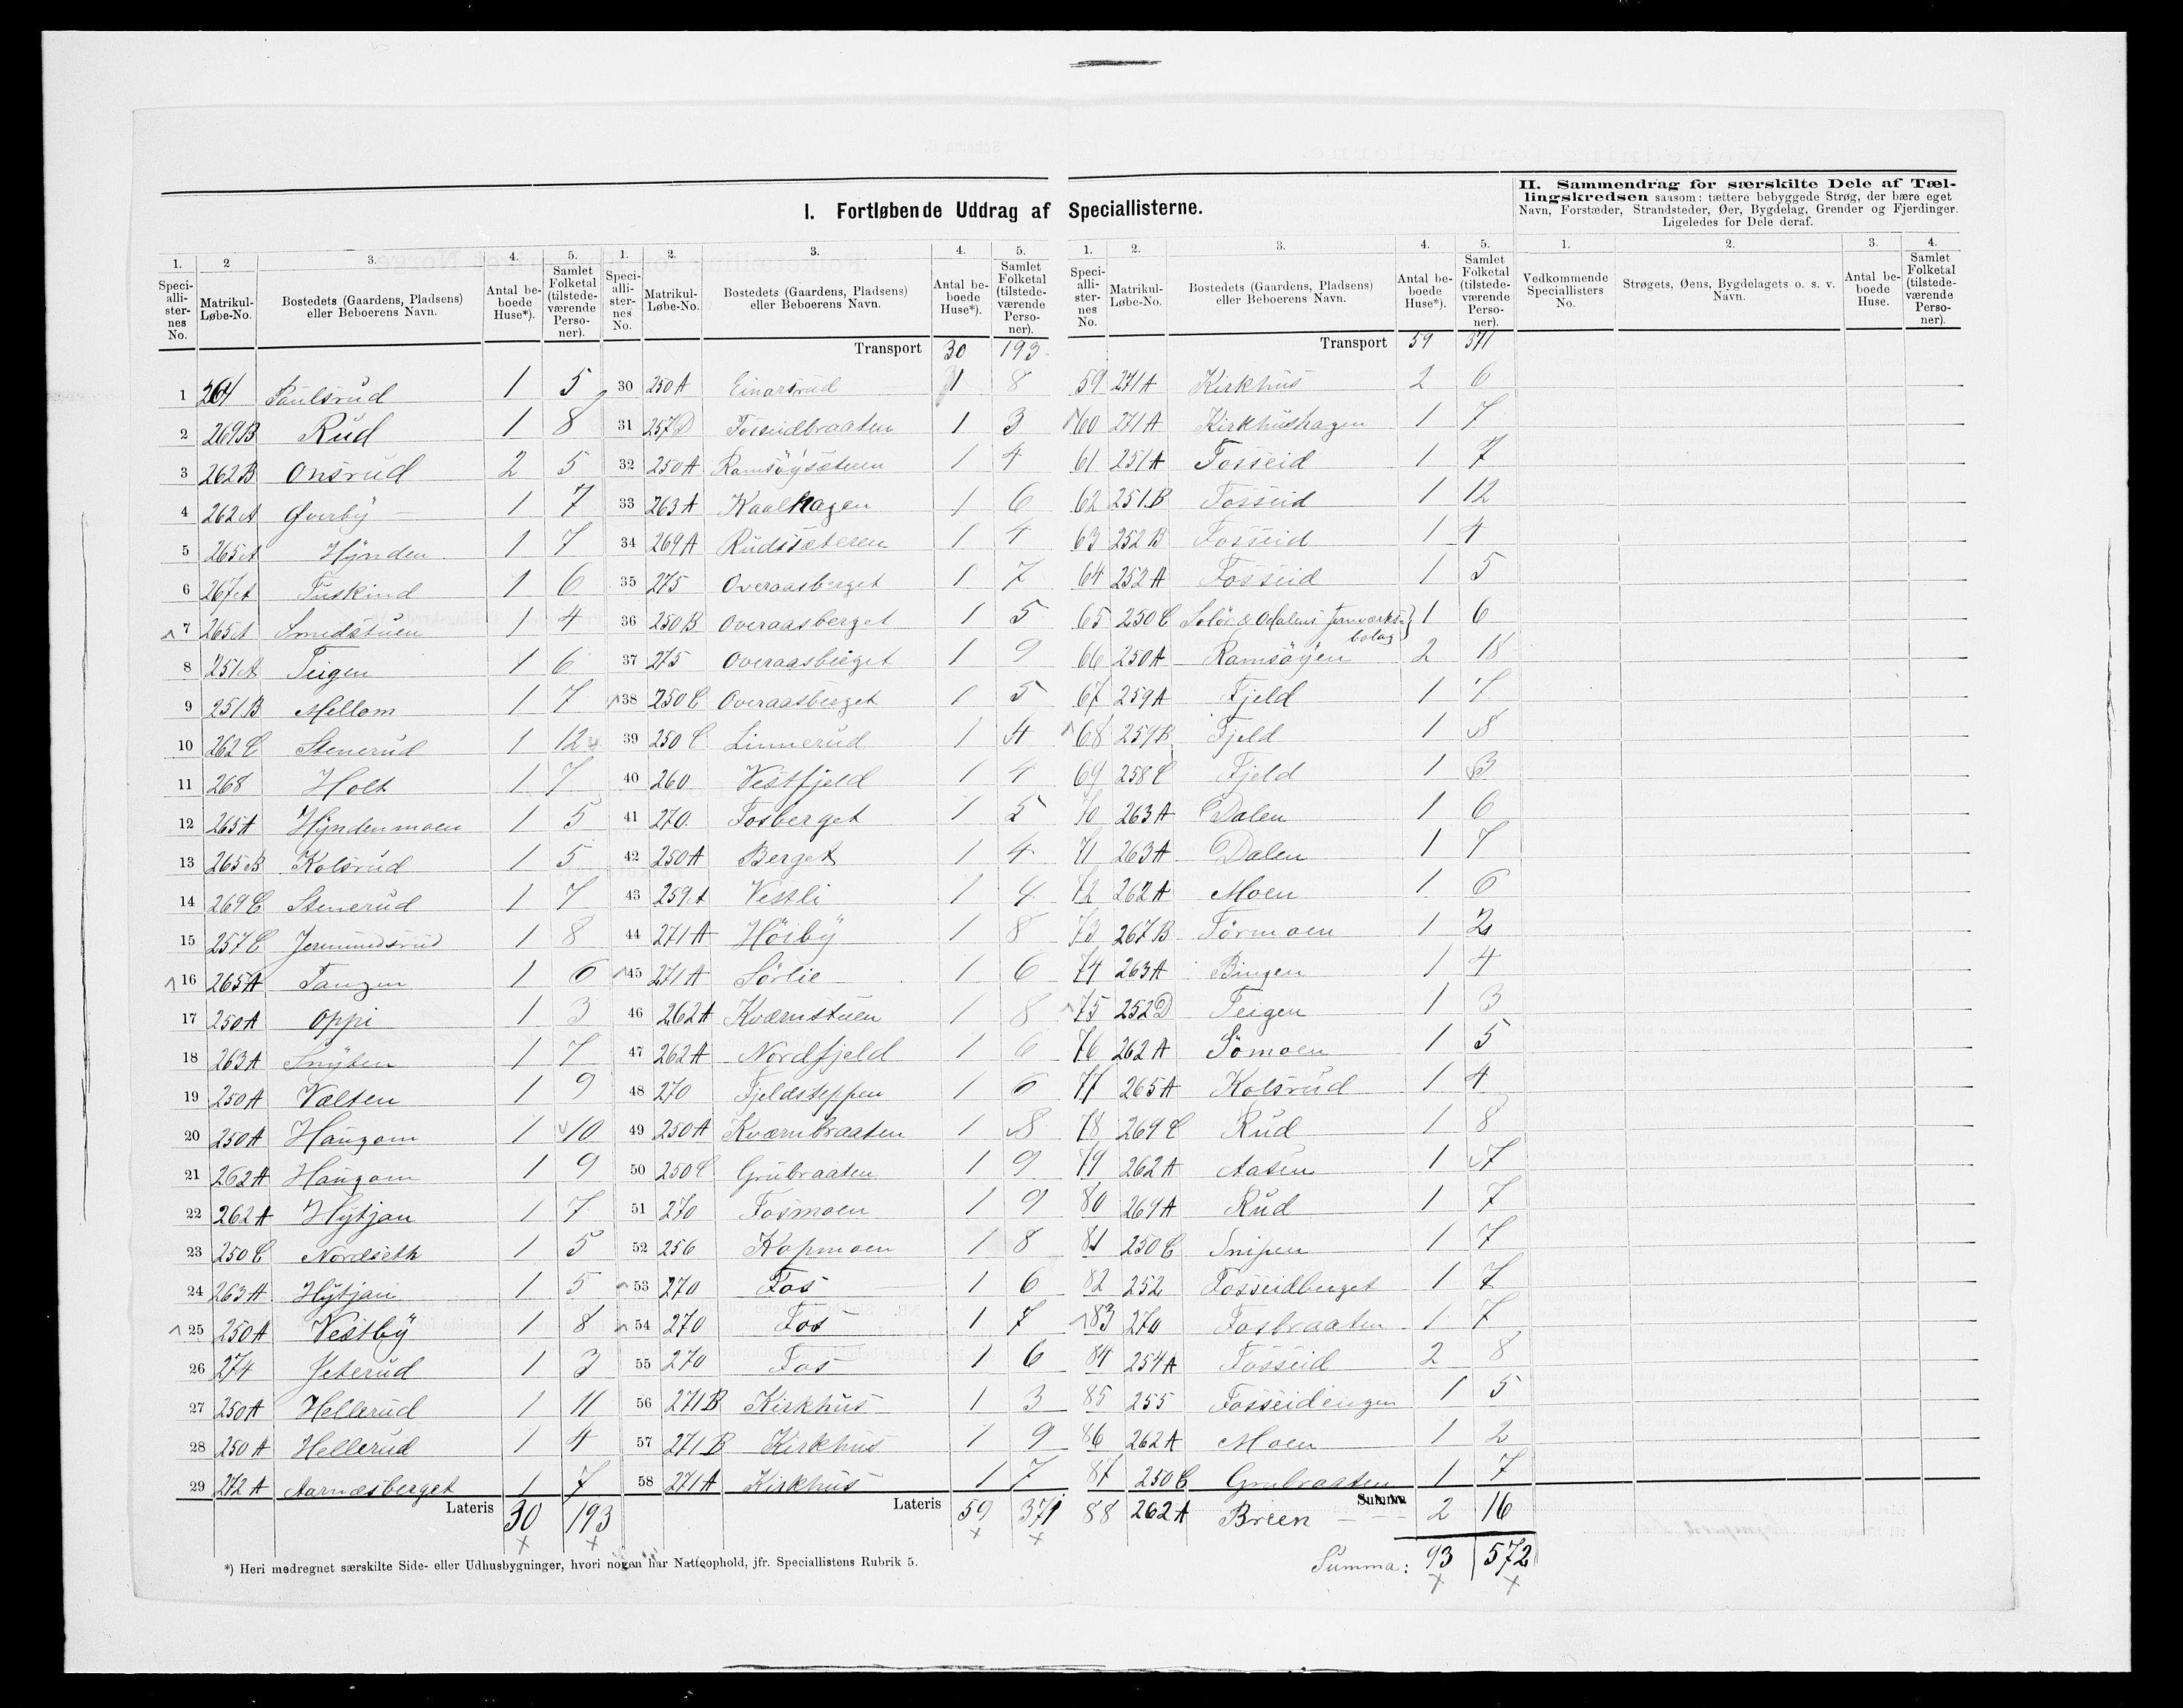 I. Fortløbende Uddrag af Speciallisterne.
II. Sammendrag for særskilte Dele af Tæl-
lingskredsen saasom: tættere bebyggede Strøg, der bære eget
Navn, Forstæder, Strandsteder, Øer, Bygdelag, Grender og Fjerdinger.
Ligeledes for Dele deraf.
1. 2 3. 4. 5. 1. 2. 3. 4. 5. 1. 2. 3. 4. 5. 1. 2. 3. 4.
Speci-alli-ster-nes No. Matrikul-Løbe-No. Bostedets (Gaardens, Pladsens) eller Beboerens Navn. Antal be-boede Huse*). Samlet Folketal (tilstede-værende Perso-ner).
Speci-alli-ster-nes No. Matrikul-Løbe-No. Bostedets (Gaardens, Pladsens) eller Beboerens Navn. Antal be-boede Huse*). Samlet Folketal (tilstede-værende Perso-ner).
Speci-alli-ster-nes No. Matrikul-Løbe-No. Bostedets (Gaardens, Pladsens) eller Beboerens Navn. Antal be-boede Huse*). Samlet Folketal (tilstede-værende Perso-ner).
Vedkommende Speciallisters No. Strøgets, Øens, Bygdelagets o. s. v. Navn. Antal be-boede Huse. Samlet Folketal (tilstede-værende Perso-ner).
1 264 Paulsrud 1 5
2 269B Rud 1 8
3 262B Onsrud 2 5
4 262A Øverby 1 7
5 265A Hynden 1 7
6 267A Tuskind 1 6
7 265A Smedstuen 1 4
8 251A Teigen 1 6
9 251B Mellom 1 7
10 262C Stenerud 1 12
11 268 Holt 1 7
12 265A Hyndenmoen 1 5
13 265B Kolsrud 1 5
14 269C Stenerud 1 7
15 257C Jermundsrud 1 8
16 265A Tangen 1 6
17 250A Oppi 1 3
18 263A Snyben 1 7
19 250A Vælten 1 9
20 250A Haugom 1 10
21 262A Haugom 1 9
22 262A Hytjan 1 7
23 250C Nordseth 1 5
24 263A Hytjan 1 5
25 250A Vestby 1 8
26 274 Jeterud 1 3
27 250A Hellerud 1 11
28 250A Hellerud 1 4
29 272A Aarnæsberget 1 7
Lateris 30 193
Transport 30 193
30 250A Einarsrud 1 8
31 257D Fosseidbraaten 1 3
32 250A Ramsøysæteren 1 4
33 263A Kaalhagen 1 6
34 269A Rudssæteren 1 4
35 275 Overaasberget 1 7
36 250B Overaasberget 1 5
37 275 Overaasberget 1 9
38 250C Overaasberget 1 5
39 250C Linnerud 1 4
40 260 Vestfjeld 1 4
41 270 Fosberget 1 5
42 250A Berget 1 4
43 259A Vestli 1 4
44 271A Höiby 1 8
45 271A Sörlie 1 6
46 262A Kværnstuen 1 8
47 262A Nordfjeld 1 6
48 270 Fjeldsteppen 1 6
49 250A Kværnbraaten 1 8
50 250C Grubraaten 1 9
51 270 Fosmoen 1 9
52 256 Kopmoen 1 8
53 270 Fos 1 6
54 270 Fos 1 7
55 270 Fos 1 6
56 271B Kirkhus 1 3
57 271B Kirkhus 1 9
58 271A Kirkhus 1 7
Lateris 59 371
Transport 59 371
59 271A Kirkhus 2 6
60 271A Kirkhushagen 1 7
61 251A Fosseid 1 7
62 251B Fosseid 1 12
63 252B Fosseid 1 4
64 252A Fosseid 1 5
65 250C Solör & Odalens Jernværks- 1 6
bolag
66 250A Ramsöyen 2 18
67 259A Fjeld 1 7
68 259B Fjeld 1 8
69 258C Fjeld 1 3
70 263A Dalen 1 6
71 263A Dalen 1 7
72 262A Moen 1 6
73 267B Törmoen 1 2
74 263A Bingen 1 4
75 252D Teigen 1 3
76 262A Sömoen 1 5
77 265A Kolsrud 1 4
78 269C Rud 1 8
79 262A Aasen 1 7
80 269A Rud 1 7
81 250C Snipen 1 7
82 252 Fosseidberget 1 7
83 270 Fosbraaten 1 7
84 254A Fosseid 2 8
85 255 Fosseidengen 1 5
86 262A Moen 1 2
87 250C Grubraaten 1 7
Summa
88 262A Breen 2 16
Summa: 93 572
*) Heri medregnet særskilte Side- eller Udhusbygninger, hvori nogen har Natteophold, jfr. Speciallistens Rubrik 5.